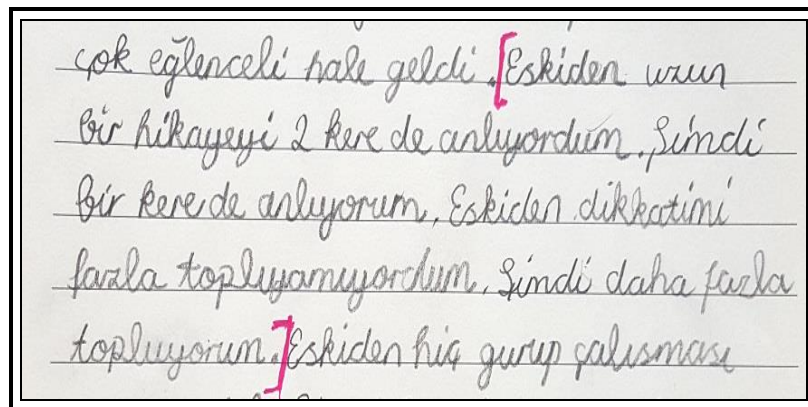 çok eğlenceli hale geldi. [Eskiden uzun
bir hikayeyi 2 kere de anlıyordum. Şimdi
bir kerede anlıyorum. Eskiden dikkatimi
fazla toplıyamıyordum. Şimdi daha fazla
topluyorum.] Eskiden hiç gurup çalısması